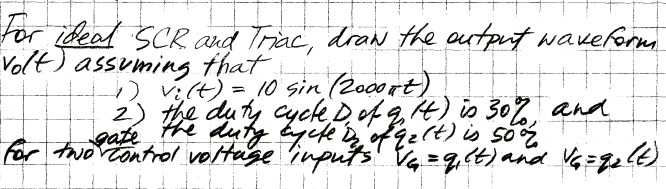 For ideal SCR and Triac, draw the output waveform
vo(t) assuming that
1) vi(t) = 10 sin (2000πt)
2) the duty cycle D1 of q1(t) is 30%, and
the duty cycle D2 of q2(t) is 50%
for two gate control voltage inputs VG = q1(t) and VG = q2(t)